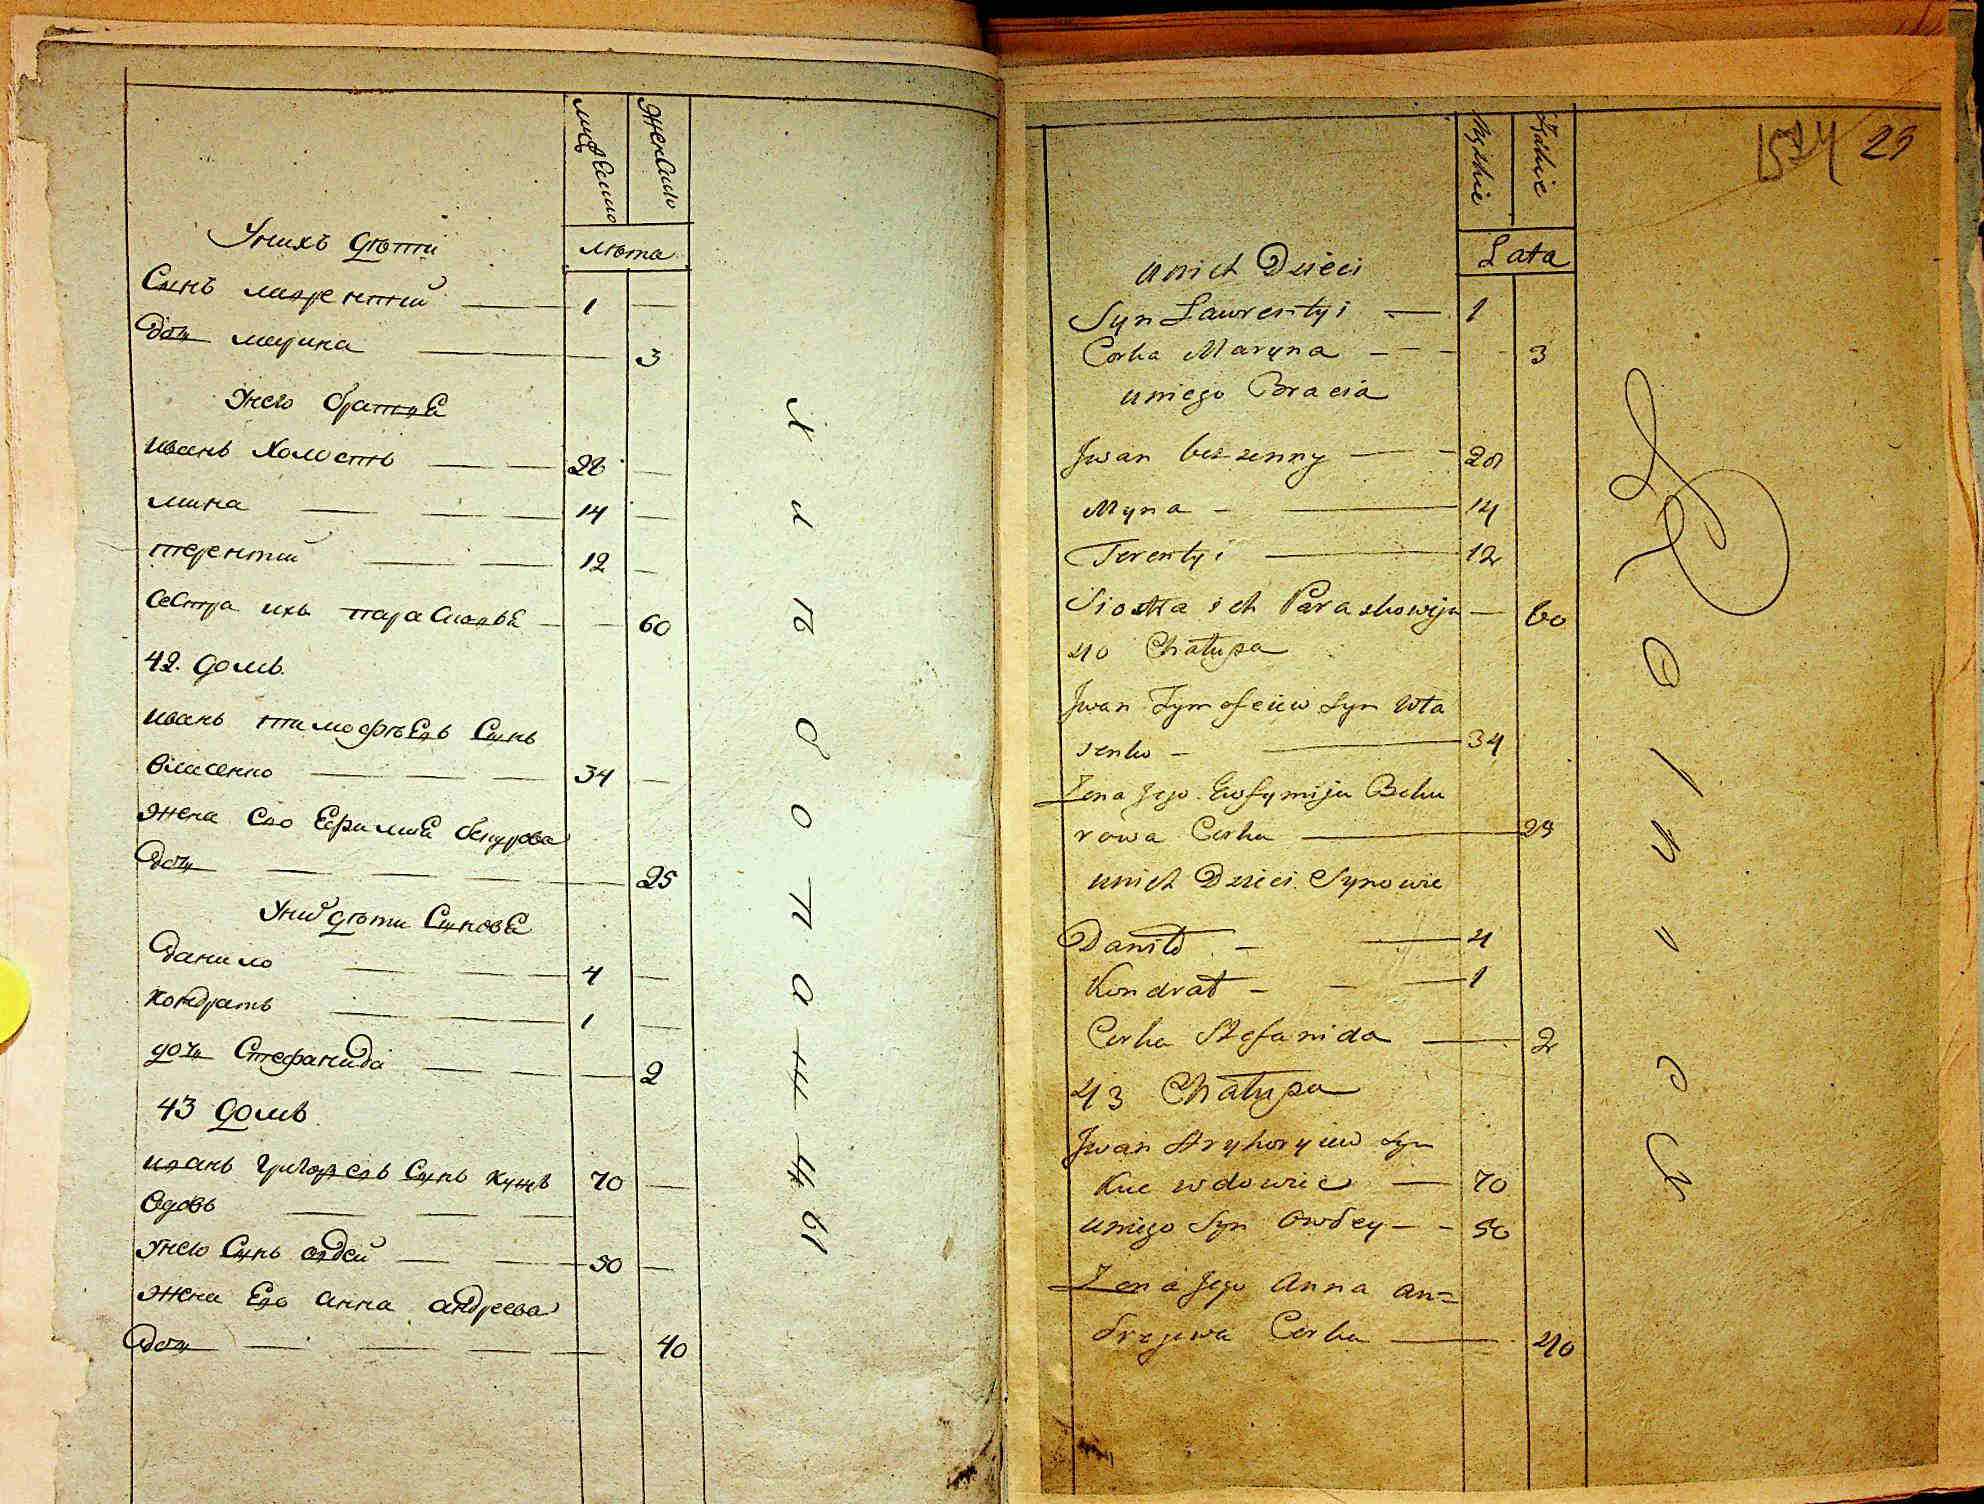 мужеско
женско
лѣта
Унихъ дѣти
Сынъ лаврентий — 1 —
Дочь марина — 3
Унего братья
иванъ холостъ — 28 —
мина — 14 —
терентий — 12 —
сестра ихъ парасковья — 60
42. домъ
иванъ тимофѣевъ Сынъ
власенко — 34 —
жена его Ефимия бекурова
Дочь — 25
Унихъ дѣти Сыновя
Данило — 4 —
кондратъ — 1 —
дочь Стефанида — 2
43 домъ
иванъ григорьевъ Сынъ куцъ 70 —
вдовъ —
Унего Сынъ авдей — 50 —
жена Его анна андреева
Дочь — 40
Męzkie
Żeńskie
Lata
1574 23
unich Dzieci
Syn Lawrentyi — 1
Corka Maryna — 3
uniego Bracia
Jwan bezzenny — 28
Myna — 14
Terentyi — 12
Siostra ich Paraskowija — 60
40 Chałupa
Jwan Tymofeiew Syn Wła
senko — 34
Żena Jego Ewfymija Beku
rowa Corka — 29
unich Dzieci Synowie
Daniło — 4
Kondrat — 1
Corka Stefanida — 2
43 Chałupa
Jwan Hryhoryiew Syn
Kuc wdowiec — 70
uniego Syn Owdey — 50
Żena Jego Anna An=
drejewa Corka — 40